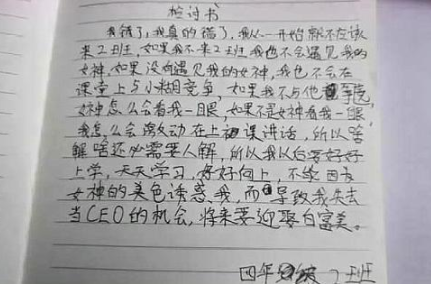 检讨书
我错了,我真的错了,我从一开始就不应该
来2班,如果我不来2班我也不会遇见我的
女神,如果没有遇见我的女神,我也不会在
课堂上与小胡竞争,如果我不与他争宠,
女神怎么会看我一眼,如果不是女神看我一眼
我怎么会激动在上课讲话,所以
解 还必需要人解,所以我以后要好好
上学,天天学习,好好向上,不能因为
女神的美色诱惑我,而导致我失去
当CEO的机会,将来要迎娶白富美。
四年级2班